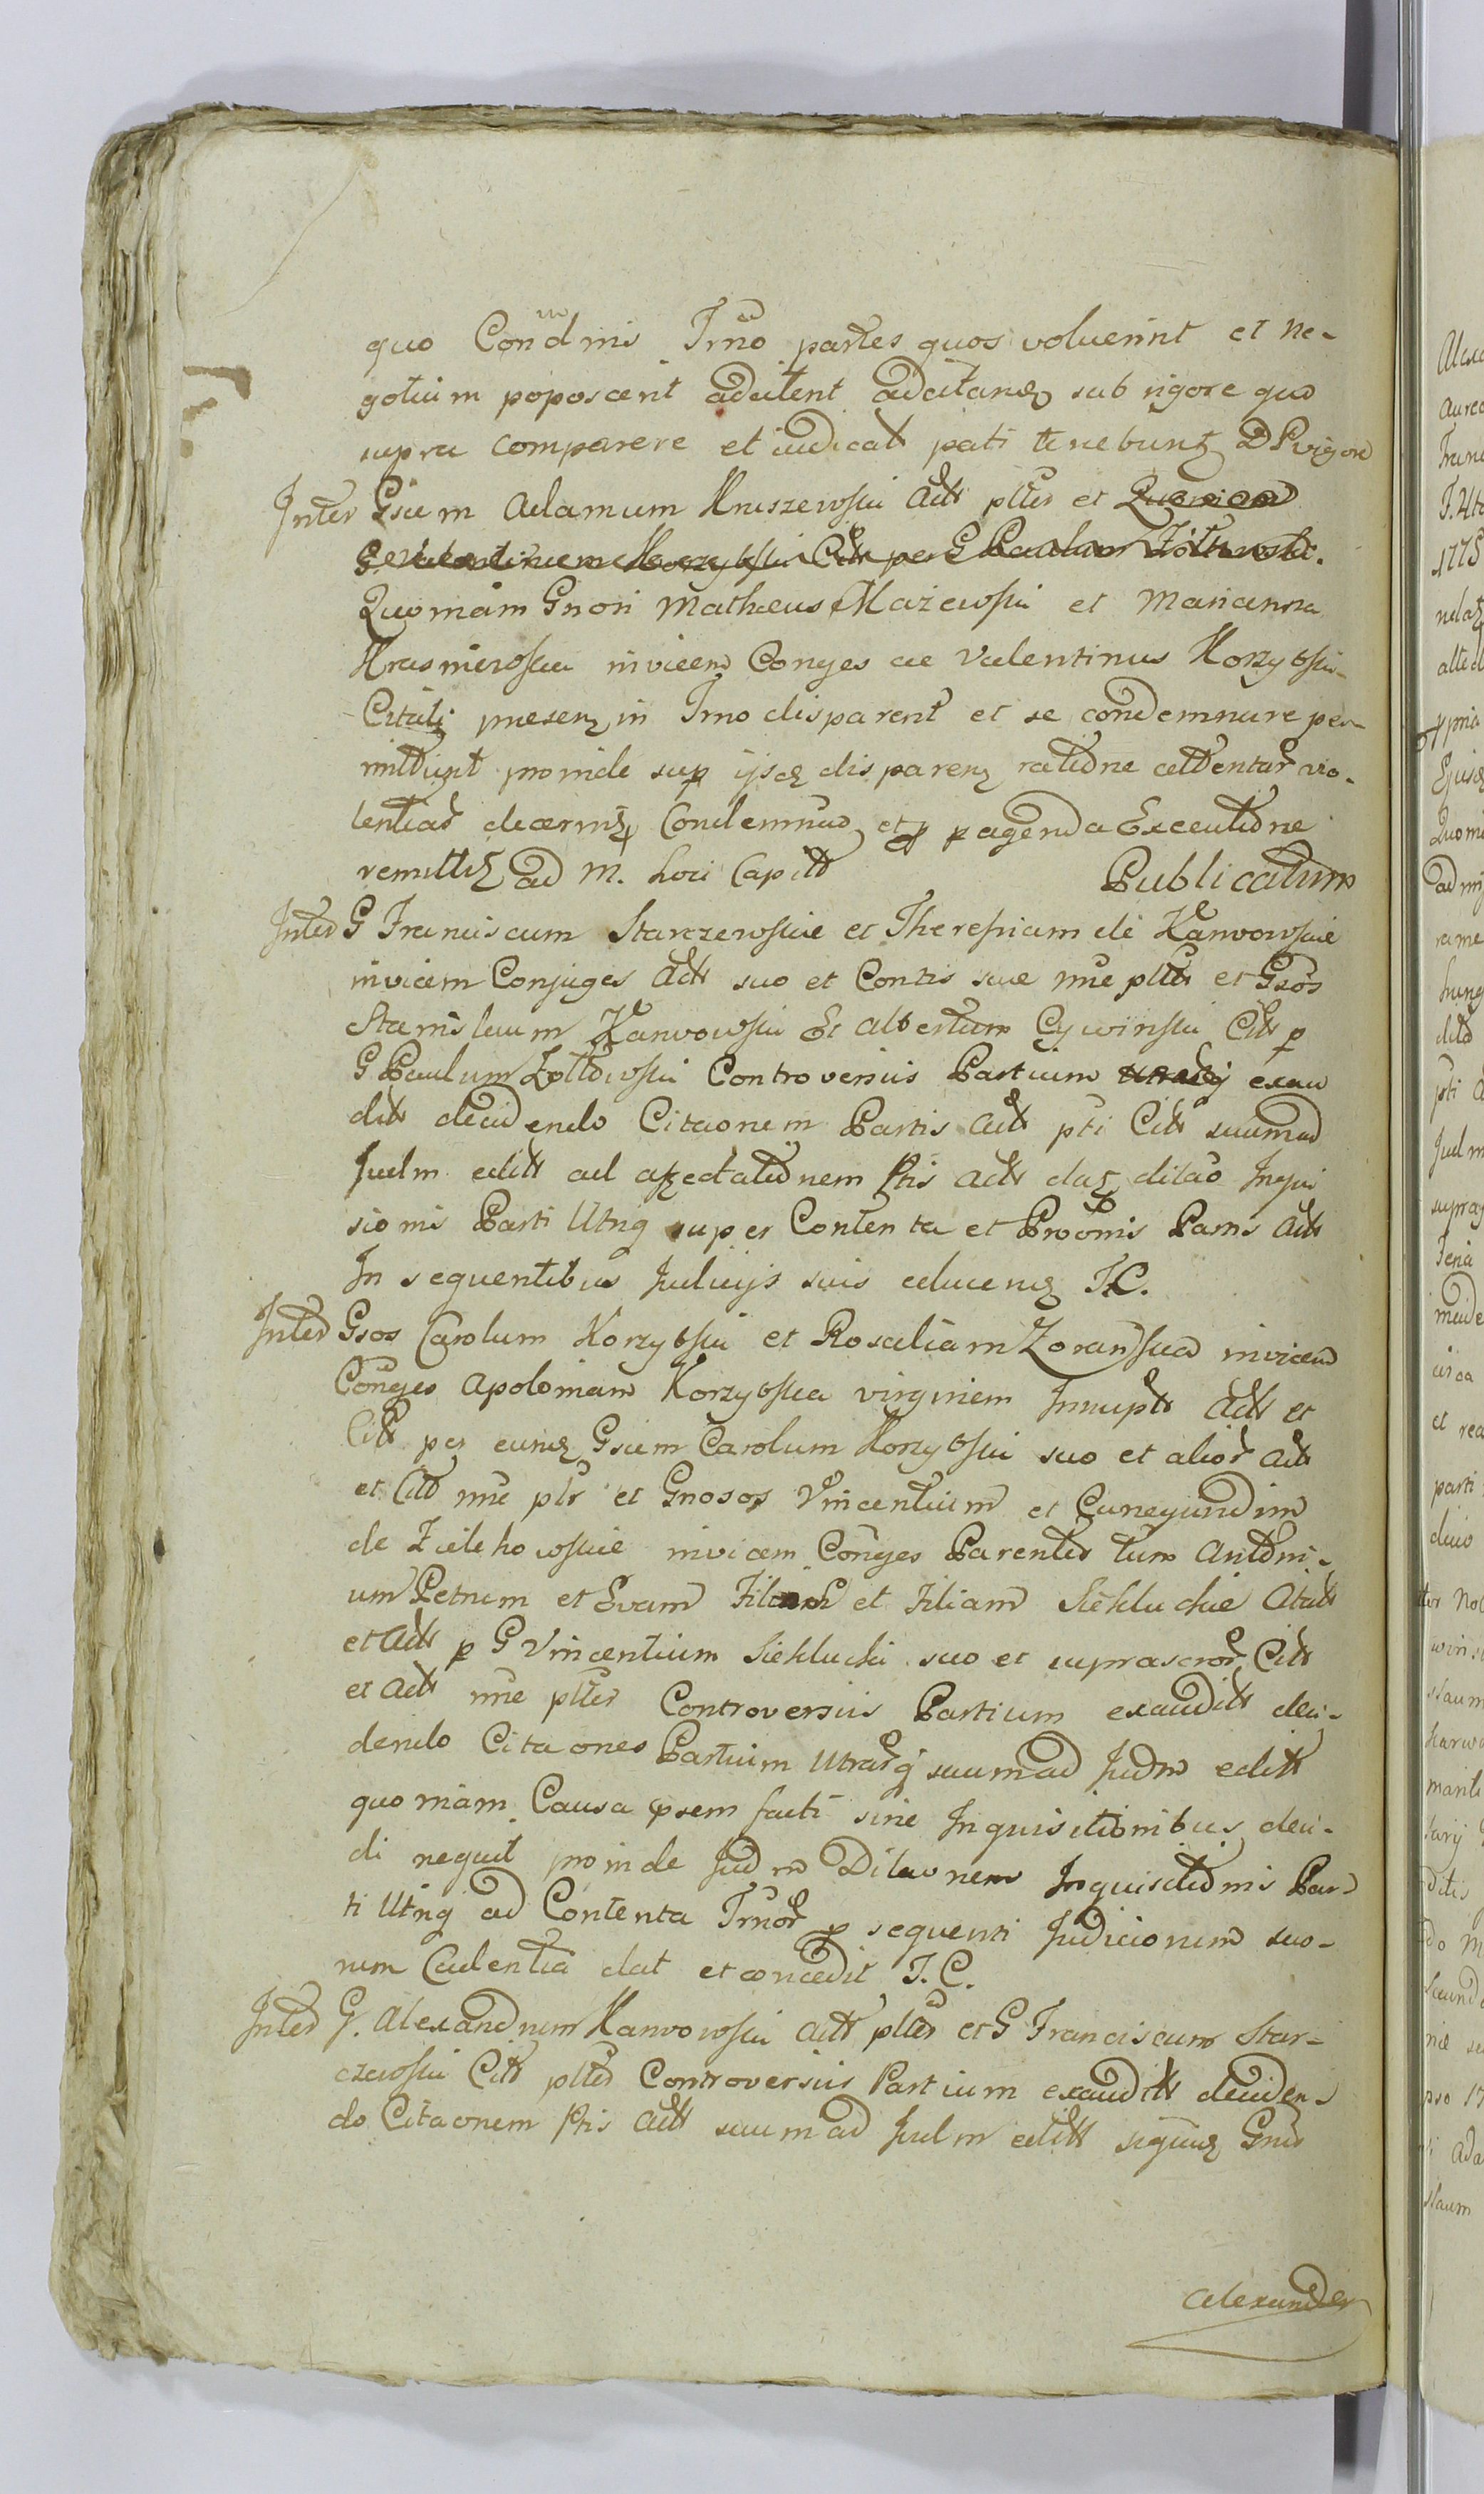 quo Condmis Trno partes quos voluerint et ne-
gotium poposcerit adcitent adcitandz sub rigore quo
supra comparere et iudicat pati tenebuntz
Inter Gsum Adamum Kruszewski Actt plter et Quoniam
G Valentinum Korzybski Citt per G Paulum Zoltowski.
Quoniam Gnosi Mathaeus Mazewski et Marianna
Krasniewska invicem Conges ac Valentinus Korzybski
Citati presenz in Trno disparent et se condemnare per-
mittunt proinde sup ijsdz disparenz ratione attentar vio-
lentiar decernitz Condemnad et p peragenda Executione
remittitz ad M. Loci Capitt Publicatum
Inter G Franciscum Starczewskie et Theresiam de Karwowskie
invicem Conjuges Actt suo et Contis suae nne plter et Gsos
Stanislaum Karwowski Et Albertum Cywinski Citt p
G Paulum Zoltowski Controversiis Partium utrarqj exau
ditt decidendo Citaonem Partis Actt pti Citt suumad
Judm editt ad affectationem Ptis Actt datz dilao Inqui
sionis Parti Utriq super Contenta et Proomis Partis Actt
In sequentibus Judicijs suis educendz T.C.
Inter Gsos Carolum Korzybski et Rosaliam Zoranska invicem
Conges Apoloniam Korzybska virginem Innupt Actt et
Citt per eundz Gsum Carolum Korzybski suo et alior Actt
et Citt nne pltr et Gnosos Vincentium et Cunegundim
de Zielchowskie invicem Conges Parentes tum Antoni-
um Petrum et Evam Filios et Filiam Siekluckie Citatt
et Actt p G Vincentium Sieklucki suo et suprascror Citt
et Actt nne plter Controversiis Partium exauditt deci-
dendo Citaones Partium Utrarqj suumad Judm editt
quoniam Causa psem facti sine Inquisitionibus deci-
di nequit proinde Judm Dilaonem Inquisitionis Par-
ti Utriq ad Contenta Trnor p sequenti Judiciorum suo-
rum Cadentia dat et concedit T.C.
Inter G. Alexandrum Karwowski Actt plter et G Franciscum Star-
czewski Citt plter Controversiis Partium exauditt deciden-
do Citaonem Ptis Actt suumad Judm editt siquidz Gnus
Alexander